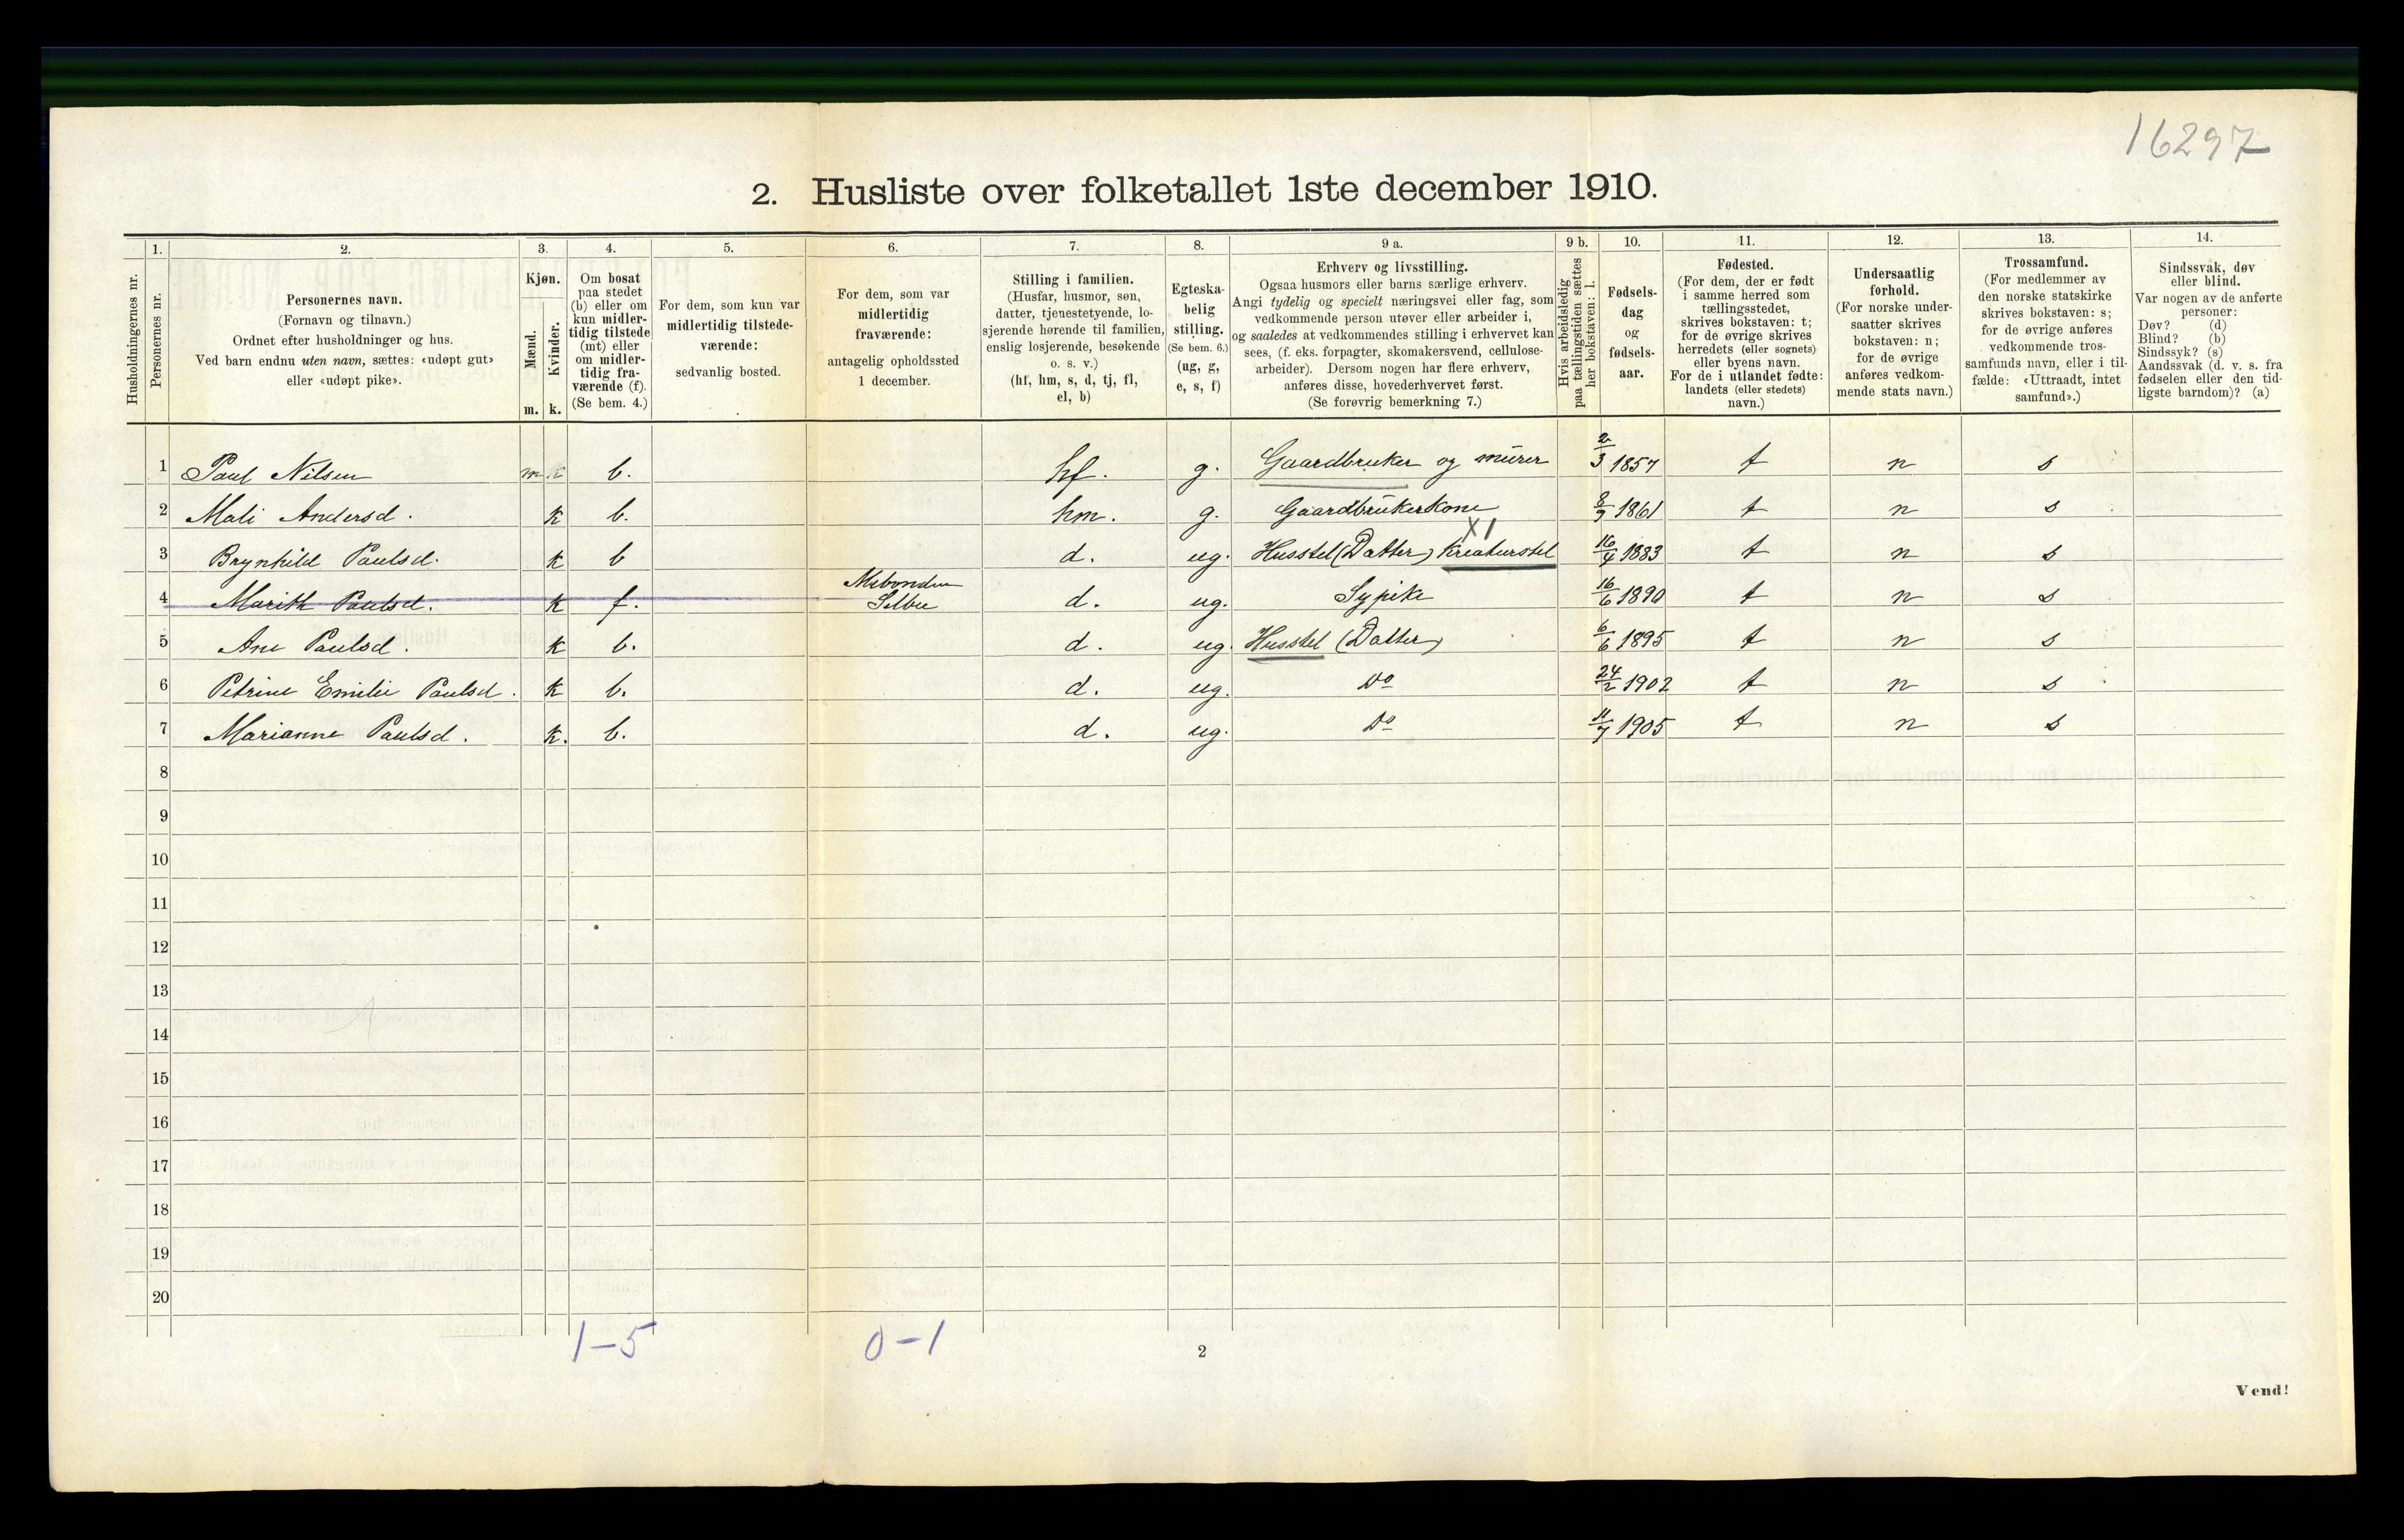 16297
2. Husliste over folketallet 1ste december 1910.
Husholdningernes nr.
1.
Personernes nr.
2.
Personernes navn.
(Fornavn og tilnavn.)
Ordnet efter husholdninger og hus.
Ved barn endnu uten navn, sættes: «udøpt gut»
eller «udøpt pike».
3.
Kjøn.
Mænd.
Kvinder.
m. k.
4.
Om bosat
paa stedet
(b) eller om
kun midler-
tidig tilstede
(mt) eller
om midler-
tidig fra-
værende (f).
(Se bem. 4.)
5.
For dem, som kun var
midlertidig tilstede-
værende:
sedvanlig bosted.
6.
For dem, som var
midlertidig
fraværende:
antagelig opholdssted
1 december.
7.
Stilling i familien.
(Husfar, husmor, søn,
datter, tjenestetyende, lo-
sjerende hørende til familien,
enslig losjerende, besøkende
o. s. v.)
(hf, hm, s, d, tj, fl,
el, b)
8.
Egteska-
belig
stilling.
(Se bem. 6.)
(ug, g,
e, s, f)
9 a.
Erhverv og livsstilling.
Ogsaa husmors eller barns særlige erhverv.
Angi tydelig og specielt næringsvei eller fag, som
vedkommende person utøver eller arbeider i,
og saaledes at vedkommendes stilling i erhvervet kan
sees, (f. eks. forpagter, skomakersvend, cellulose-
arbeider). Dersom nogen har flere erhverv,
anføres disse, hovederhvervet først.
(Se forøvrig bemerkning 7.)
9 b.
Hvis arbeidsledig
paa tællingstiden sættes
her bokstaven: l.
10.
Fødsels-
dag
og
fødsels-
aar.
11.
Fødested.
(For dem, der er født
i samme herred som
tællingsstedet,
skrives bokstaven: t;
for de øvrige skrives
herredets (eller sognets)
eller byens navn.
For de i utlandet fødte:
landets (eller stedets)
navn.)
12.
Undersaatlig
forhold.
(For norske under-
saatter skrives
bokstaven: n;
for de øvrige
anføres vedkom-
mende stats navn.)
13.
Trossamfund.
(For medlemmer av
den norske statskirke
skrives bokstaven: s;
for de øvrige anføres
vedkommende tros-
samfunds navn, eller i til-
fælde: «Uttraadt, intet
samfund».)
14.
Sindssvak, døv
eller blind.
Var nogen av de anførte
personer:
Døv? (d)
Blind? (b)
Sindssyk? (s)
Aandssvak (d. v. s. fra
fødselen eller den tid-
ligste barndom)? (a)
1 Paul Nilsen m k b. hf. g. Gaardbruker og murer 2/3 1857 t n s
2 Mali Andersd. k b. hm. g. Gaardbrukerkone 8/9 1861 t n s
XI
3 Brynhild Paulsd. k b d. ug. Husstel (Datter) Kreaturstel 16/4 1883 t n s
4 Marith Paulsd. k f. Mebonden Selbu d. ug. Sypike 16/6 1890 t n s
5 Ane Paulsd. k b. d. ug. Husstel (Datter) 6/6 1895 t n s
6 Petrine Emilie Paulsd. k b. d. ug. Do 24/2 1902 t n s
7 Marianne Paulsd. k. b. d. ug. Do 11/7 1905 t n s
8
9
10
11
12
13
14
15
16
17
18
19
20
1-5 0-1
2
Vend!